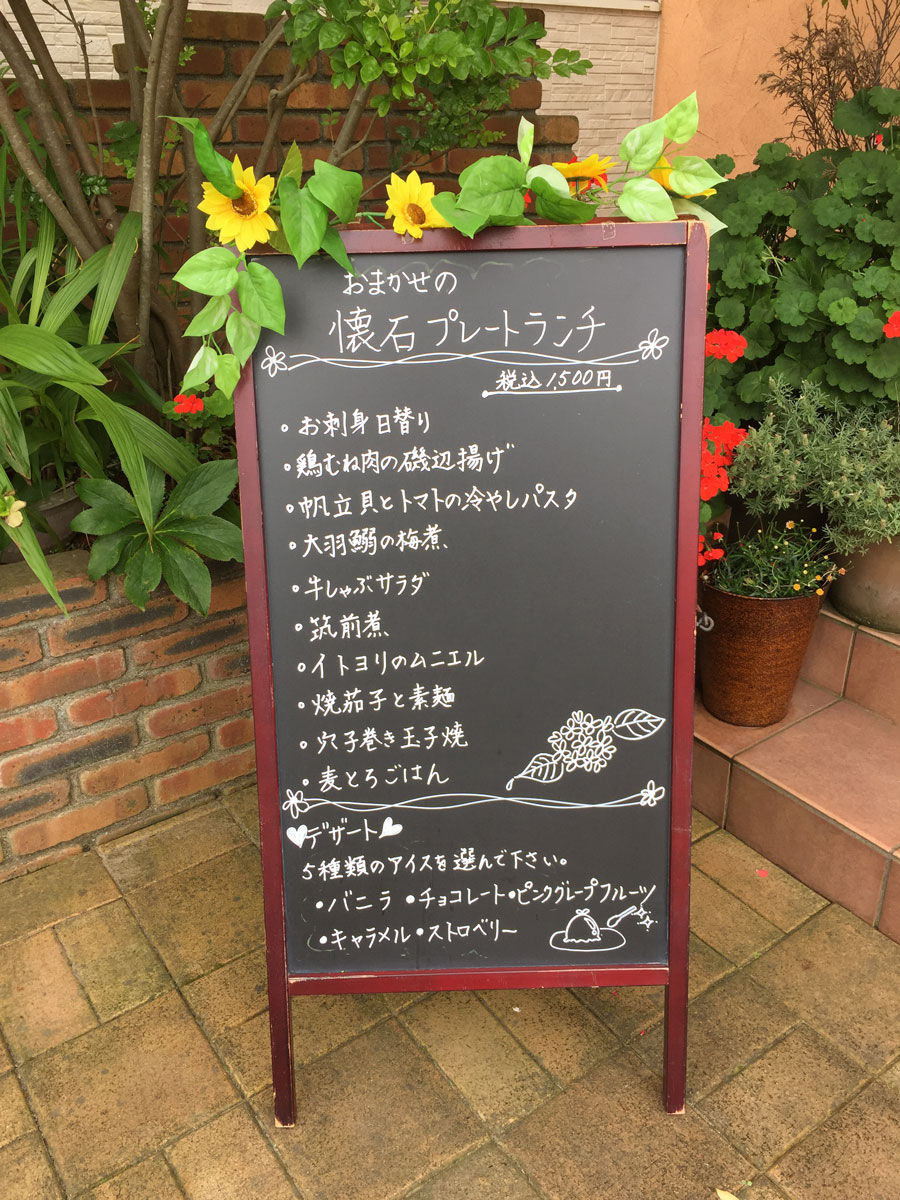 おまかせの
懐石プレートランチ
税込1,500円
・お刺身日替り
・鶏むね肉の磯辺揚げ
・帆立貝とトマトの冷やしパスタ
・大羽鰯の梅煮
・牛しゃぶサラダ
・筑前煮
・イトヨリのムニエル
・焼茄子と素麺
・穴子巻き玉子焼
・麦とろごはん
デザート
5種類のアイスを選んで下さい。
・バニラ ・チョコレート・ピンクグレープフルーツ
・キャラメル・ストロベリー